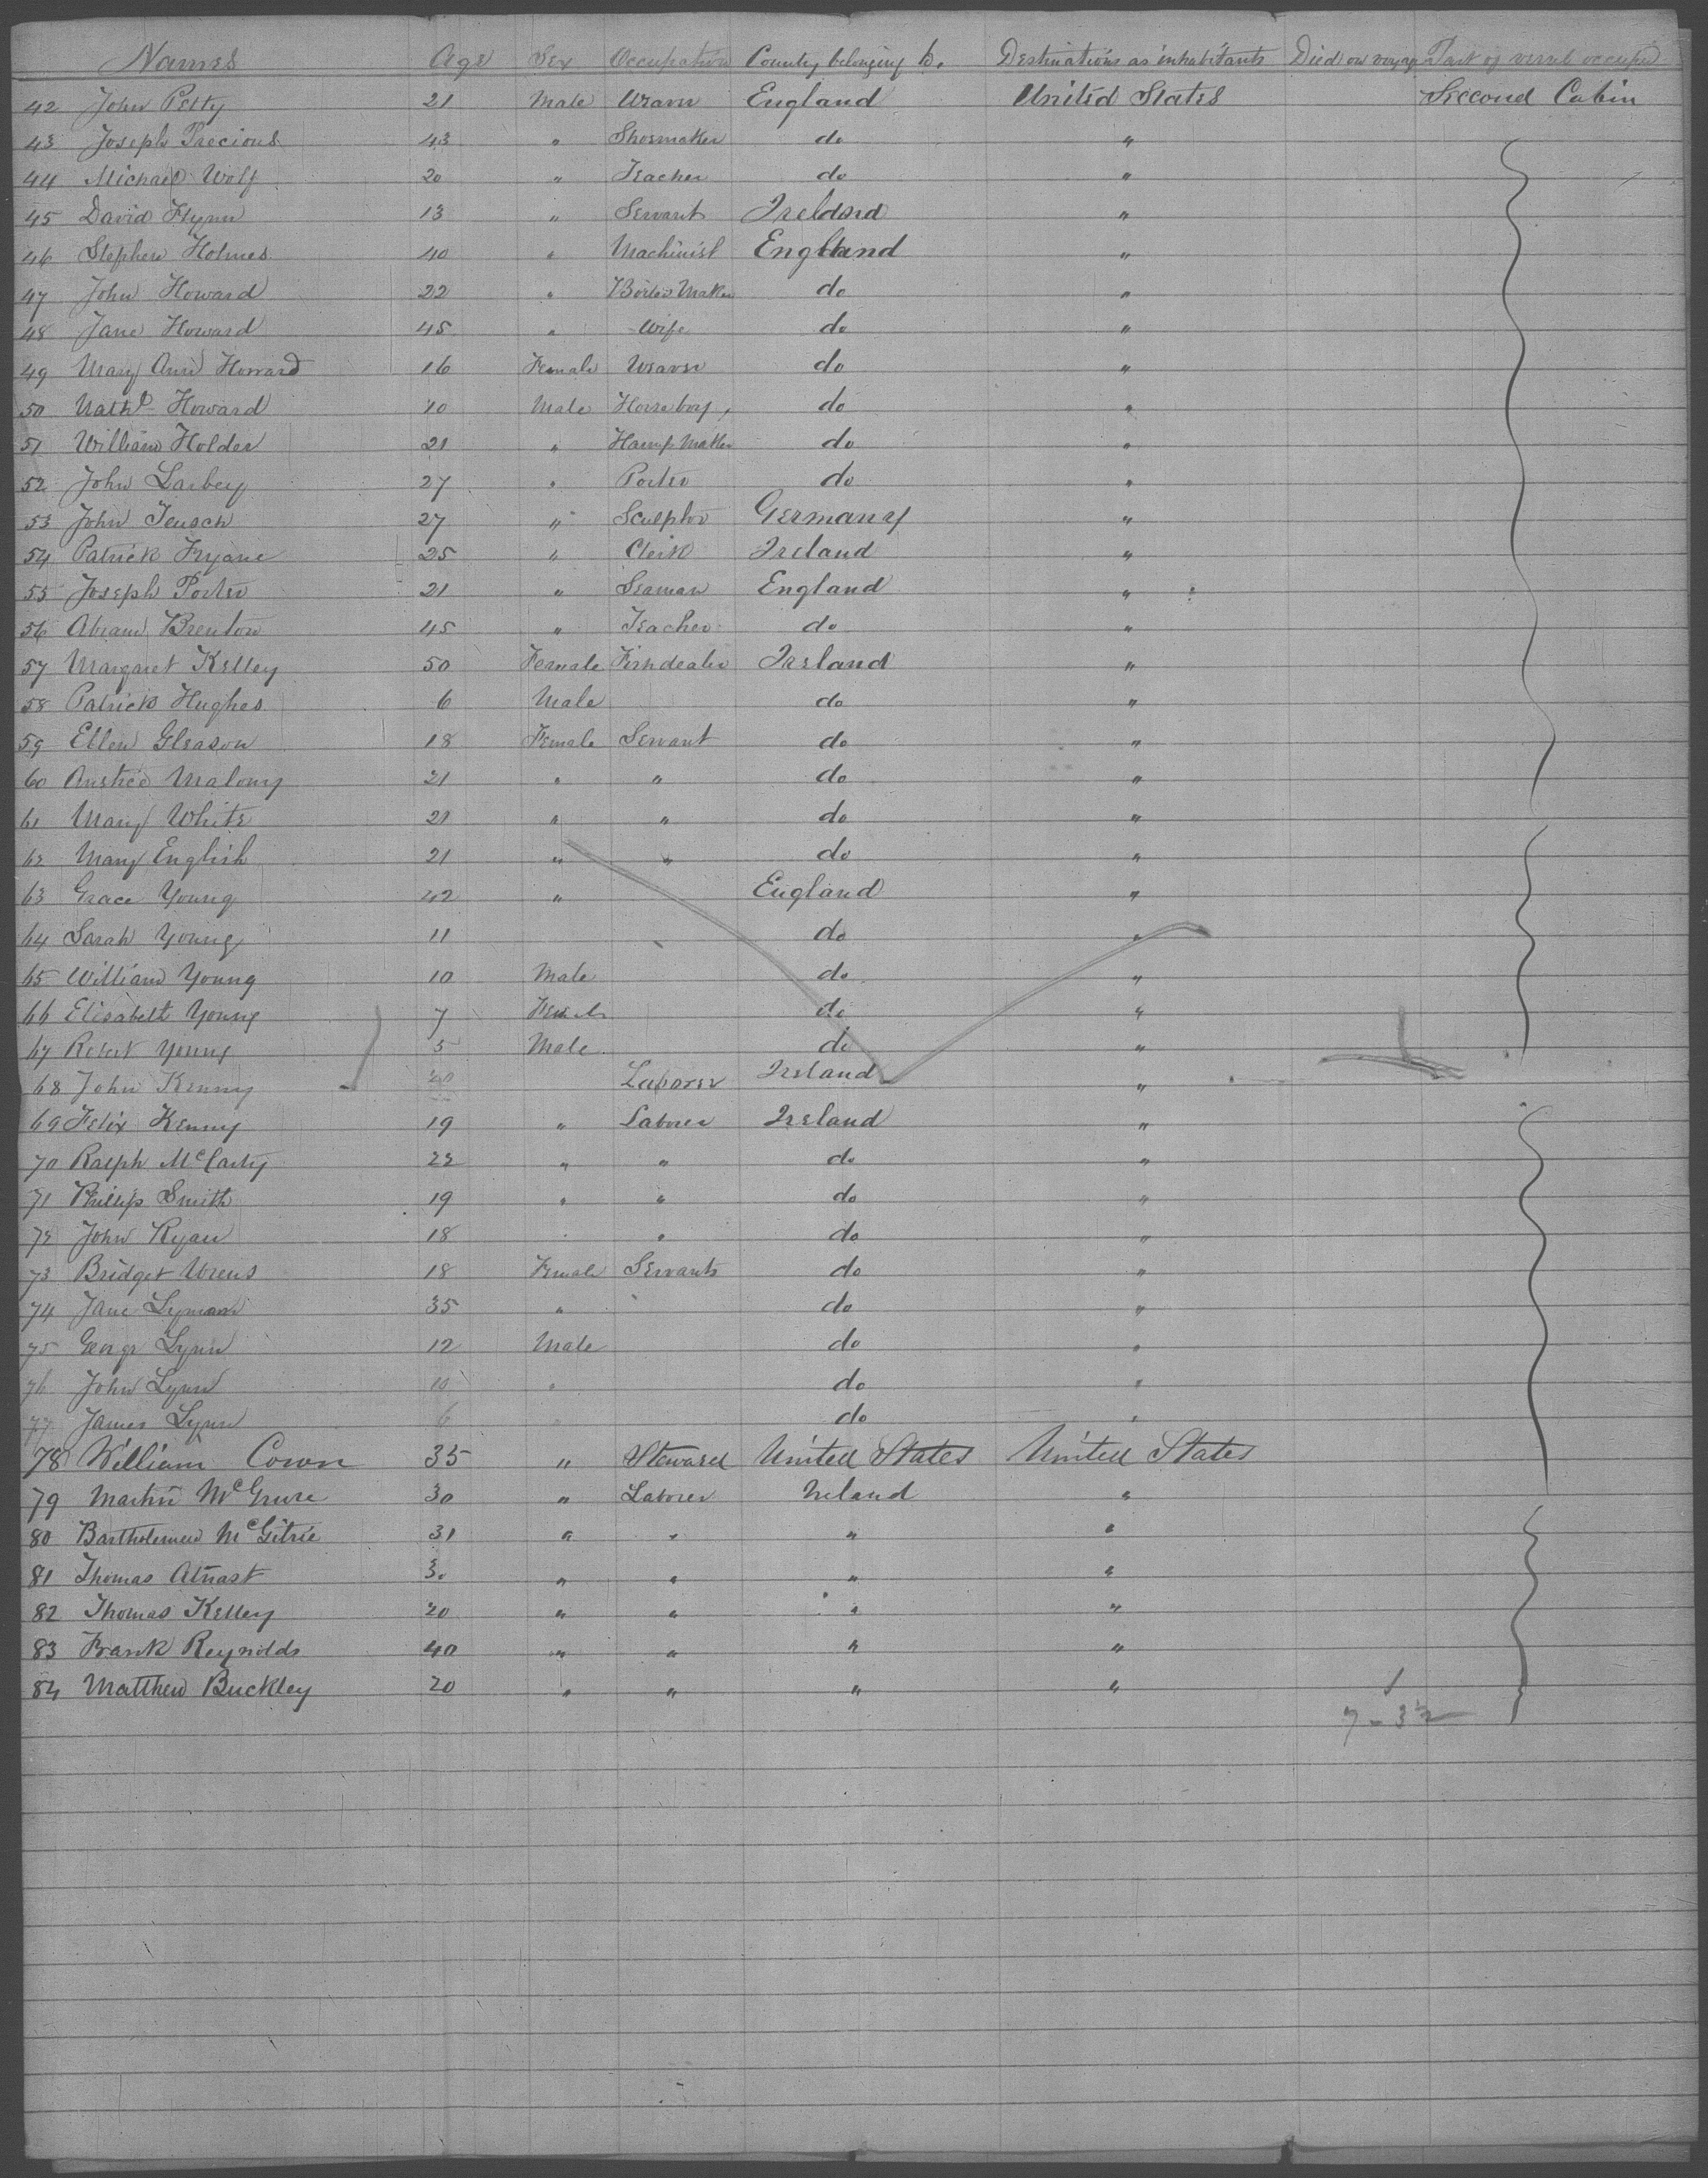 Names Age Sex Occupation Country belonging to. Destinations as inhabitants Died on voyage Part of vessel occupied
42 John Petty 21 Male Weaver England United States Second Cabin
43 Joseph Precious 43 " Shoemaker do "
44 Michael Wolf 20 " Teacher do "
45 David Flynn 13 " Servant Ireland "
46 Stephen Holmes 40 " Machinist England "
47 John Howard 22 " Boiler Maker do "
48 Jane Howard 45 " Wife do "
49 Mary Ann Howard 16 Female Weaver do "
50 Nathl Howard 10 Male do "
51 William Holder 21 " Maker do "
52 John Larbey 27 " Porter do "
53 John Teusch 27 " Sculptor Germany "
54 Patrick Fryane 25 " Clerk Ireland "
55 Joseph Porter 21 " Seaman England "
56 Abram Brenton 45 " Teacher do "
57 Margaret Kelley 50 Female Fishdealer Ireland "
58 Patrick Hughes 6 Male do "
59 Ellen Gleason 18 Female Servant do "
60 Malony 21 " " do "
61 Mary White 21 " " do "
62 Mary English 21 " " do "
63 Grace Young 42 " England "
64 Sarah Young 11 do "
65 William Young 10 Male do "
66 Elisabeth Young 7 do "
67 Robert Young 5 Male do "
68 John Kenny 20 Laborer Ireland "
69 Felix Kenny 19 " Laborer Ireland "
70 Ralph McCarty 22 " " do "
71 Phillip Smith 19 " " do "
72 John Ryan 18 " " do "
73 Bridget Wrens 18 Female Servants do "
74 Jane Lyman 35 " do "
75 George Lynn 12 Male do "
76 John Lynn 10 " do "
77 James Lynn 6 do "
78 William Cown 35 " Steward United States United States
79 Martin McGrure 30 " Laborer Ireland "
80 Bartholemew McGitrie 31 " " " "
81 Thomas 30 " " " "
82 Thomas Kelley 20 " " " "
83 Frank Reynolds 40 " " " "
84 Matthew Buckley 20 " " " "